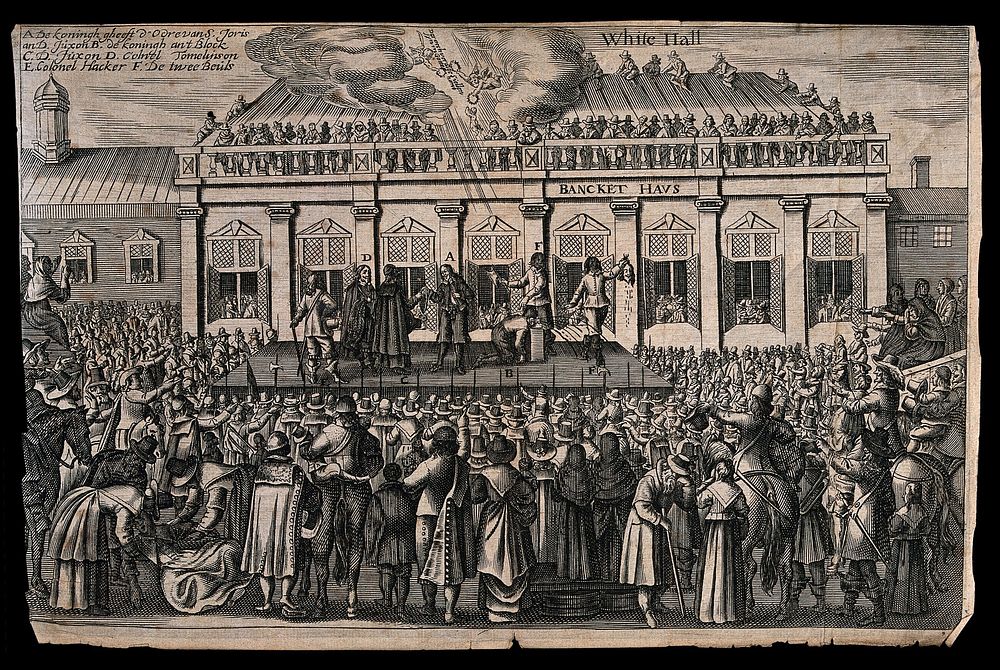 A. De koningh gheeft d'Odre van S. Joris
an D. Juxon B. de koningh an't Block
C. D. Juxon D. Colnel Tomelinson
E. Colonel Hacker F. De twee Beuls
White Hall
BANCKET HAVS
D
A
F
C
B
F